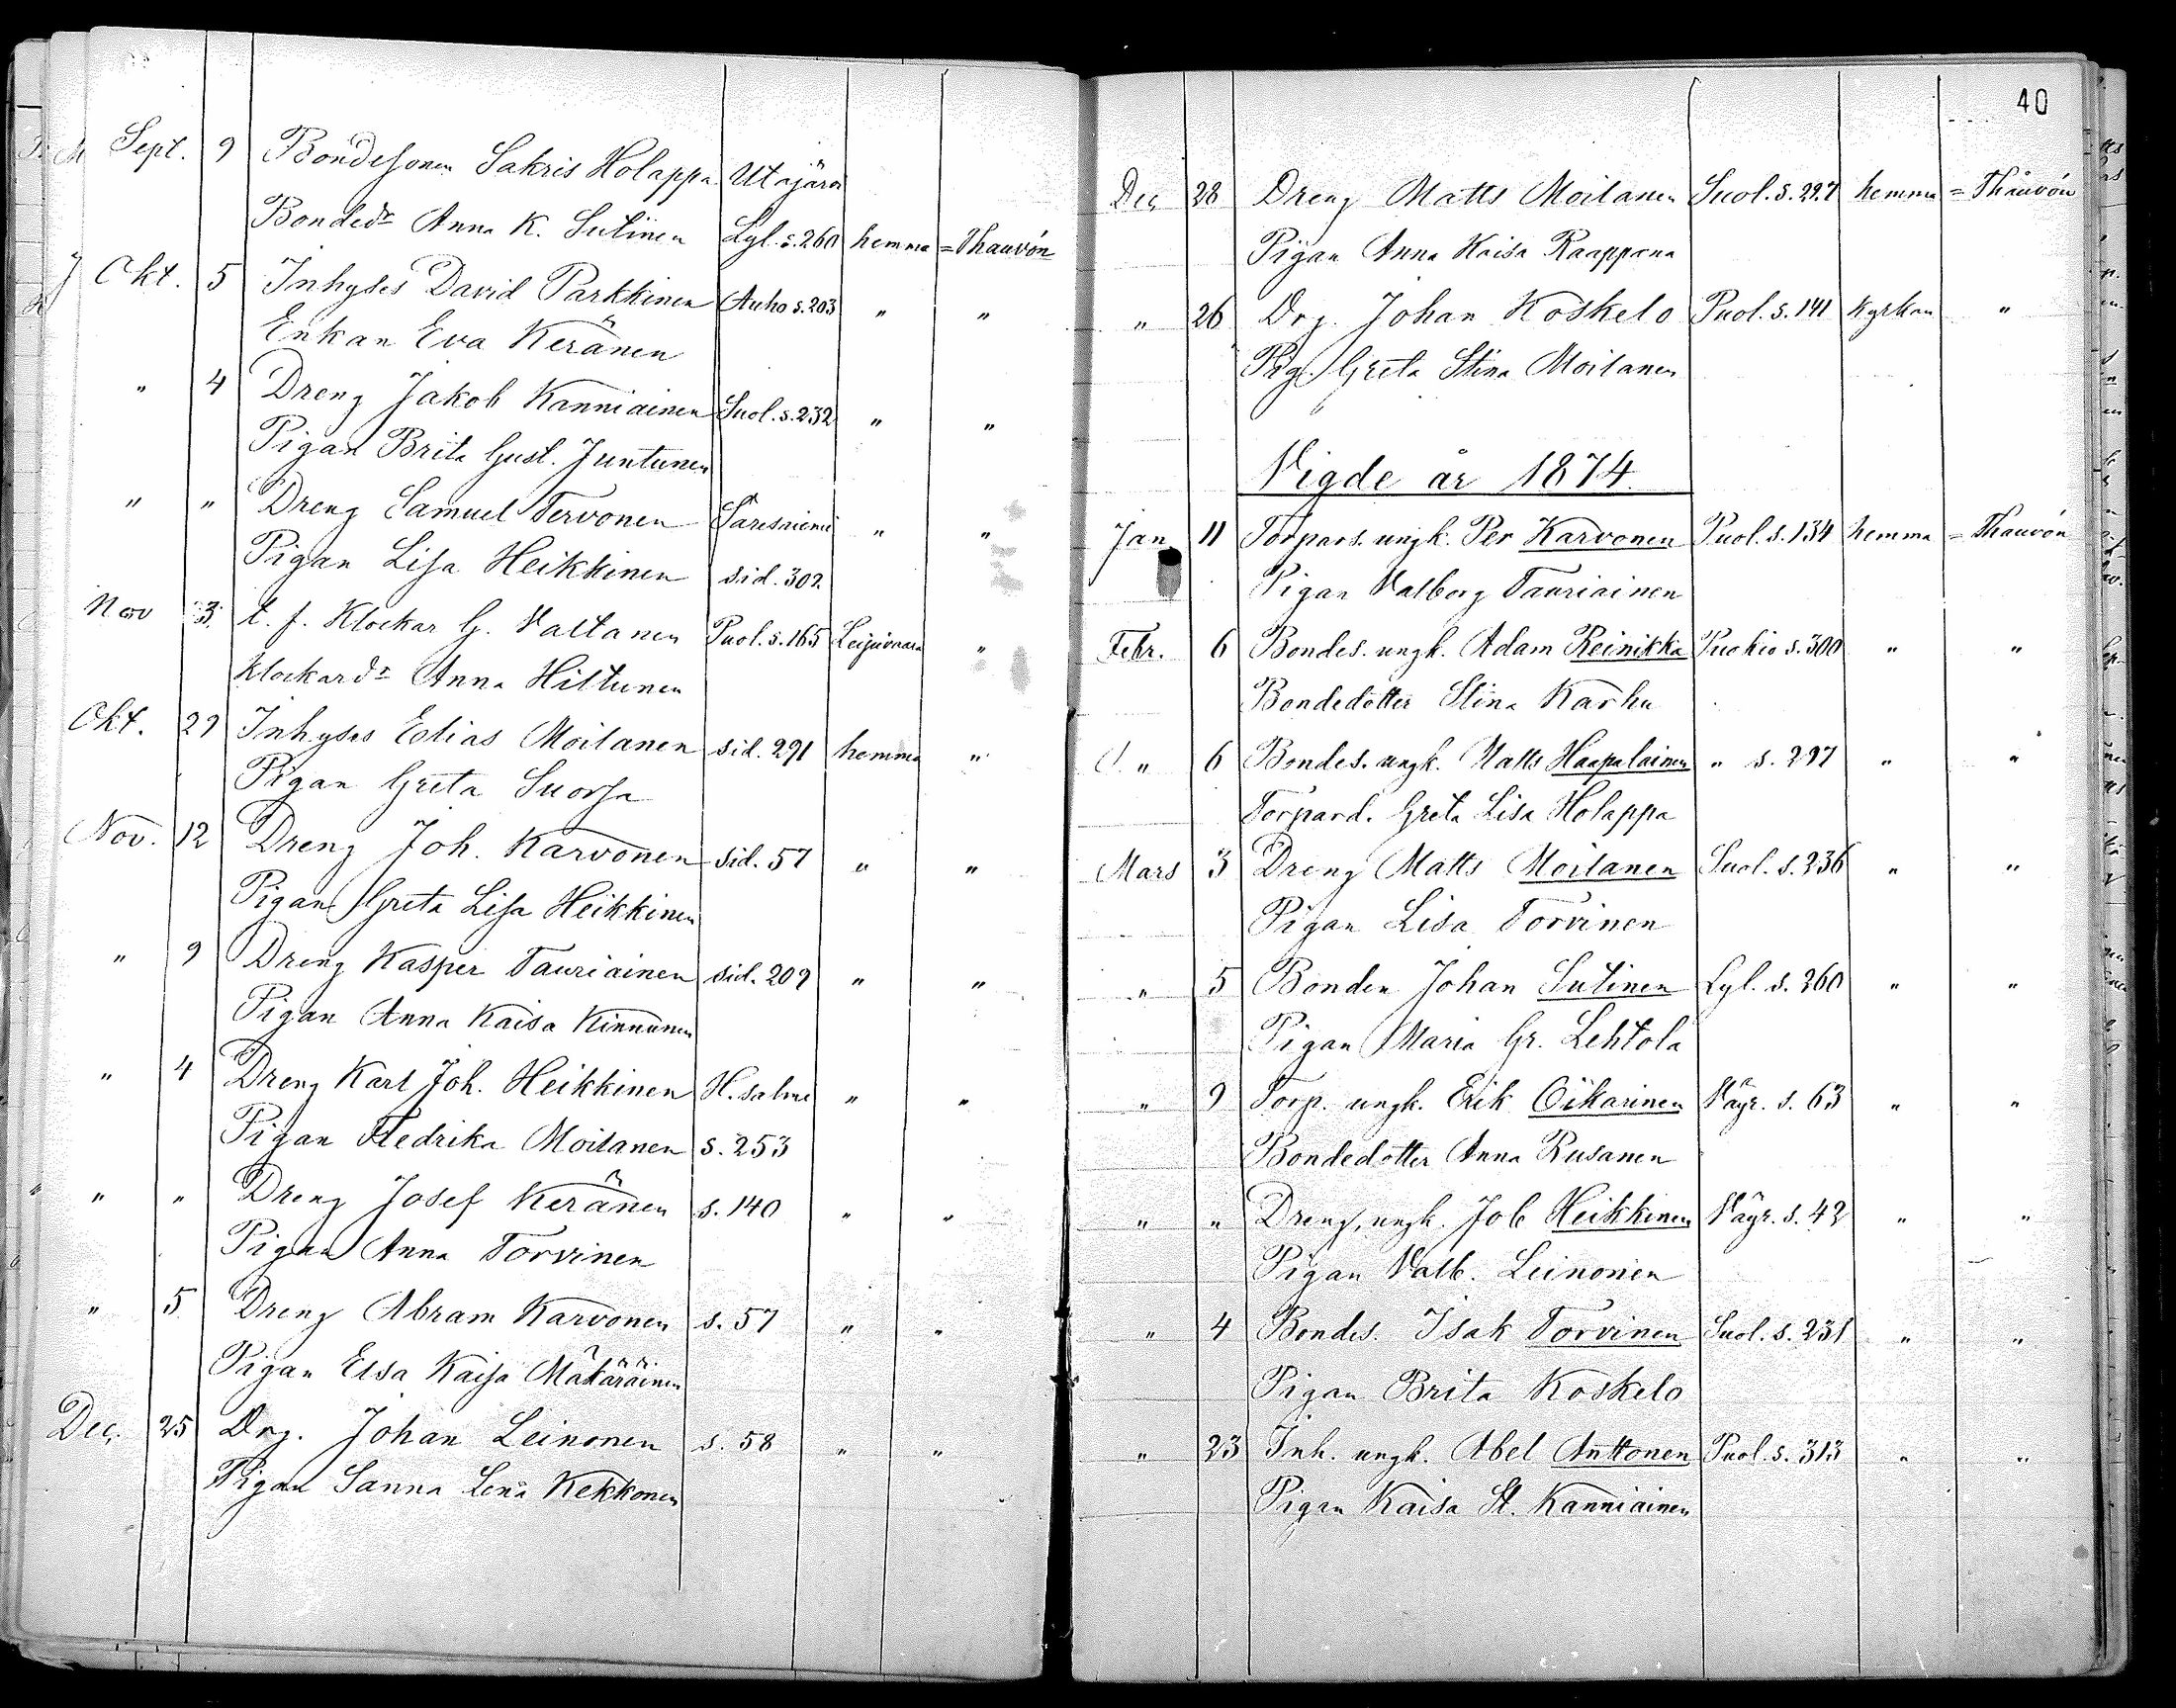 Sept. 9 Bondesonen Sakris Holappa Utajärvi
Bondedr Anna K. Sutinen Lyl. s. 260 hemma = Thauvón
Okt. 5 Inhyses David Parkkinen Auho s. 203 " "
Enkan Eva Keränen
" 4 Dreng Jakob Kanniainen Suol. s. 232 " "
Pigan Brita Gust. Juntunen
" " Dreng Samuel Tervonen Säresniemi " "
Pigan Lisa Heikkinen sid. 302
Nov 3 t. f. Klockar G. Valtanen Puol. s. 165 Leipivaara "
Klockardr Anna Hiltunen
Okt. 29 Inhyses Elias Moilanen sid. 291 hemma "
Pigan Greta Suorsa
Nov. 12 Dreng Joh. Karvonen sid. 57 " "
Pigan Greta Lisa Heikkinen
" 9 Dreng Kasper Tauriainen sid. 209 " "
Pigan Anna Kaisa Kinnunen
" 4 Dreng Karl Joh. Heikkinen H. salmi " "
Pigan Fredrika Moilanen s. 253
" " Dreng Josef Keränen s. 140 " "
Pigan Anna Torvinen
" 5 Dreng Abram Karvonen s. 57 " "
Pigan Elsa Kaisa Mäkäräinen
Dec. 25 Drg. Johan Leinonen s. 58 " "
Pigan Sanna Lena Kekkonen
40
Dec 28 Dreng Matts Moilanen Suol. s. 227 hemma = Thauvón
Pigan Anna Kaisa Raappana
" 26 Drg. Johan Koskelo Puol. s. 141 Kyrkan "
Pig. Greta Stina Moilanen
Vigde år 1874.
Jan. 11 Torpars. ungk. Per Karvonen Puol. s. 134 hemma = Thauvón
Pigan Valborg Tauriainen
Febr. 6 Bondes. ungk. Adam Reinikka Puokio s. 300 " "
Bondedotter Stina Karhu
" 6 Bondes. ungk. Matts Haapalainen " s. 297 " "
Torpard. Greta Lisa Holappa
Mars 3 Dreng Matts Moilanen Suol. s. 236 " "
Pigan Lisa Torvinen
" 5 Bonden Johan Sutinen Lyl. s. 260 " "
Pigan Maria Gr. Lehtola
" 9 Torp. ungk. Erik Oikarinen Väyr. s. 63 " "
Bondedotter Anna Rusanen
" " Dreng, ungk. Job Heikkinen Väyr. s. 42 " "
Pigan Valb. Leinonen
" 4 Bondes. Isak Torvinen Suol. s. 231 " "
Pigan Brita Koskelo
" 23 Inh. ungk. Abel Anttonen Puol. s. 313 " "
Pigan Kaisa St. Kanniainen